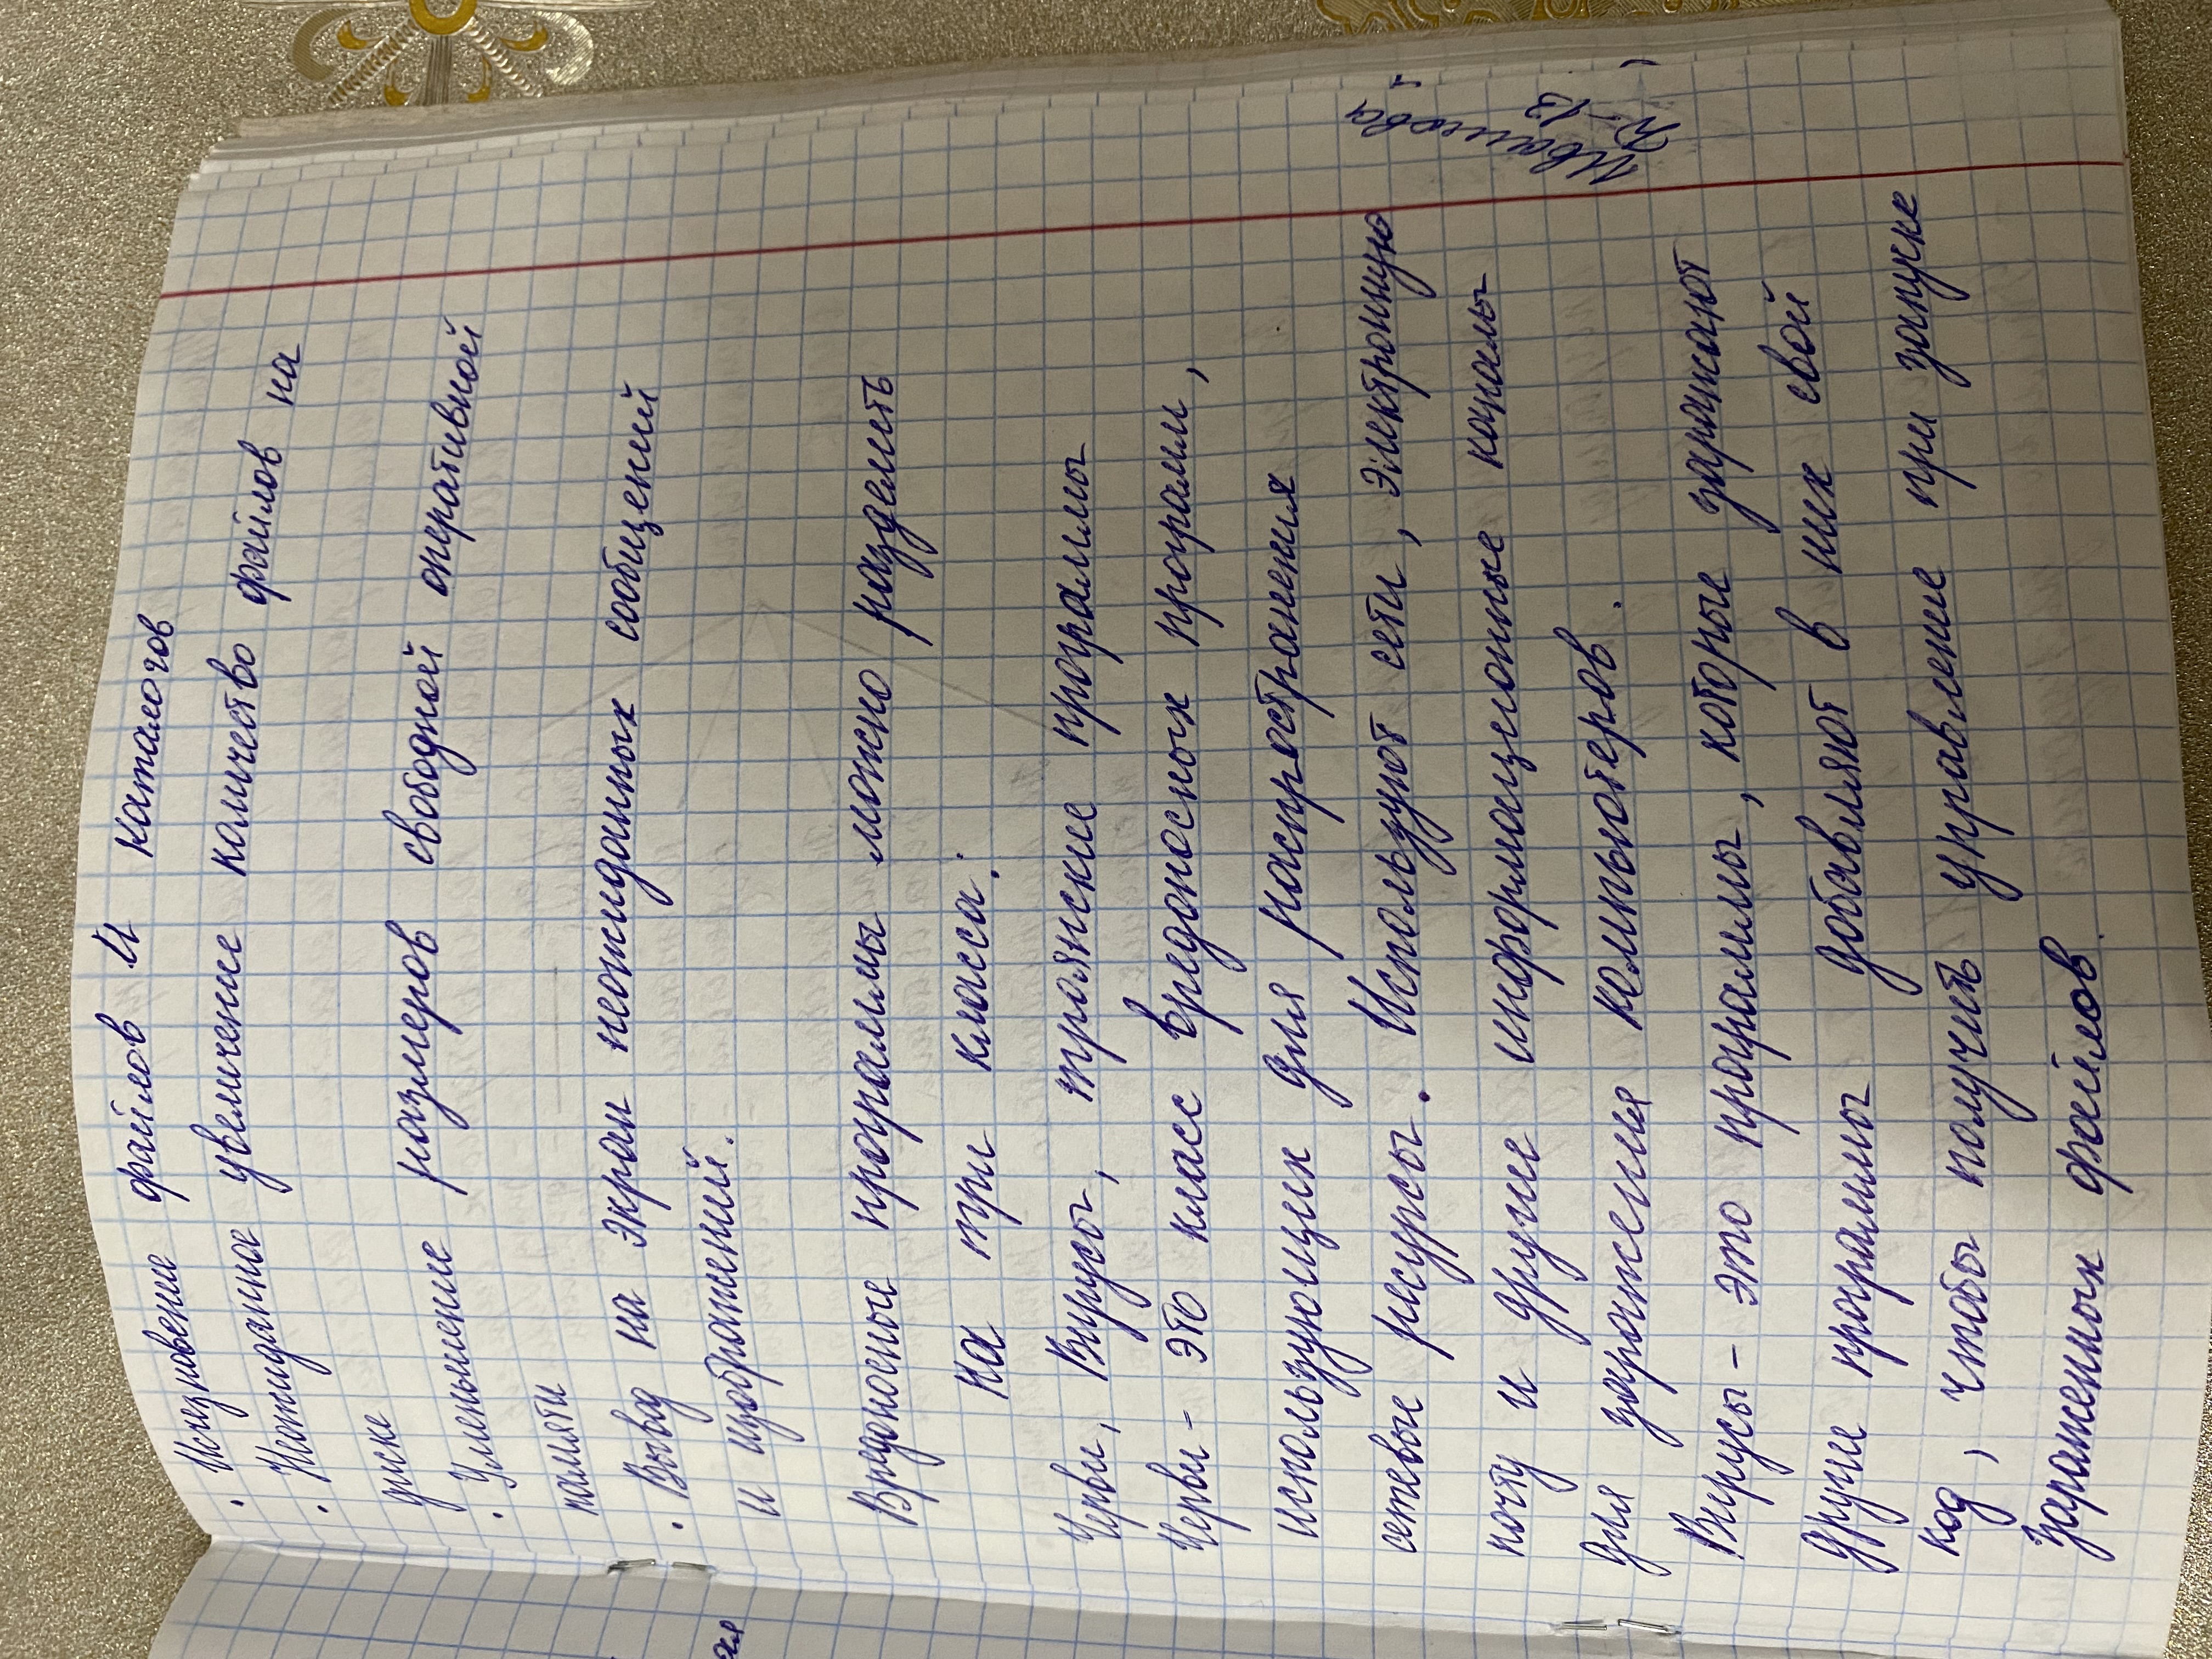 · Исчезновение файлов и каталогов
· Неожиданное увеличение количество файлов на
диске
· Уменьшение размеров свободной оперативной
памяти
· Вывод на экран неожиданных сообщений
и изображений.
Вредоносные программы можно разделить
на три класса:
Черви, Вирусы, троянские программы
Черви - это класс вредоносных программ,
использующих для распространения
сетевые ресурсы. Используют сети, электронную
почту и другие информационные каналы
для заражения компьютеров.
Вирусы - это программы, которые заражают
другие программы добавляют в них свой
код, чтобы получить управление при запуске
зараженных файлов.
ая